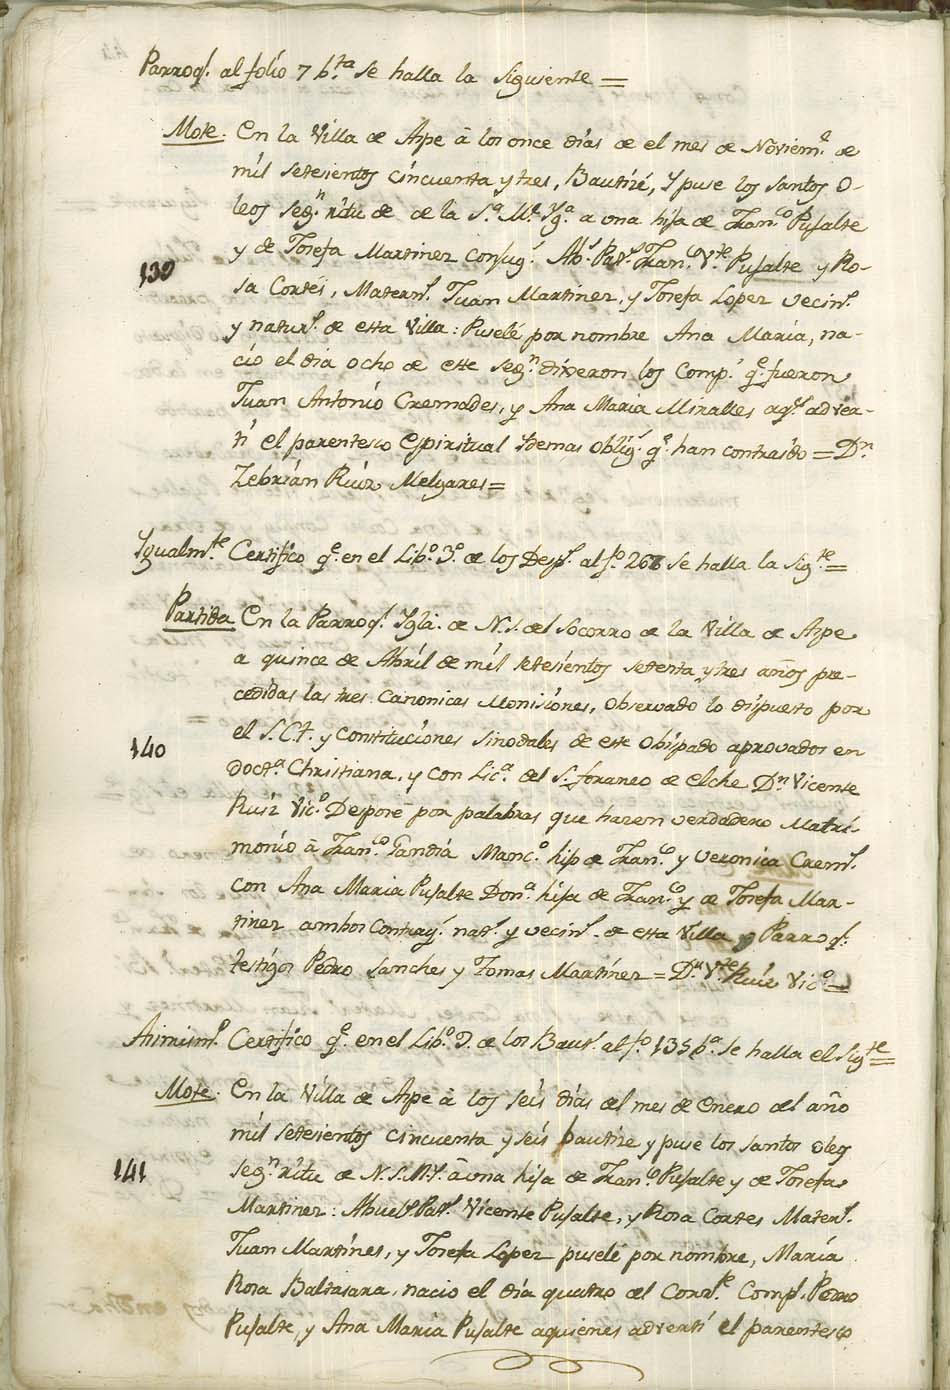 Parroq.l al folio 7 b.ta se halla la siguiente =
Mote. En la Villa de Aspe â los once dias de el mes de Noviem.e de
mil setesientos cincuenta y tres, Bautizé, y puse los santos O-
leos seg.n ritu de de la S.a M.e Yg.a a una hija de Fran.co Pujalte
y de Josefa Martinez conjug.s Ab.s Pat.s Fran.co V.te Pujalte y Ro-
139
sa Cortés, Matern.s Juan Martinez, y Josefa Lopez vecin.s
y natur.s de esta Villa: Puselé por nombre Ana Maria, na-
ció el dia ocho de este seg.n dixeron los Comp.s q.e fueron
Juan Antonio Cremades, y Ana Maria Miralles a q.s adver-
tí el parentesco espiritual y demas oblig.s q.e han contraido = D.n
Zebrian Ruiz Melgares =
Ygualm.te Certifico q.e en el Lib.o 3.o de los Desp.s al f.o 268 se halla la sig.te =
Partida En la Parroq.l Ygla. de N. S. del Socorro de la Villa de Aspe
a quince de Abril de mil setesientos setenta y tres años pre-
cedidas las tres canonicas Monisiones, observado lo dispuesto por
el S. C. T. y Constituciones sinodales de este Obispado aprovados en
140
doct.a Christiana, y con Lic.a del S. foraneo de Elche D.n Vicente
Ruiz Vic.o Desporé por palabras que hazen verdadero Matri-
monio â Fran.co Gandia Manc.o hijo de Fran.co y Veronica Crem.s
con Ana Maria Pujalte Don.a hija de Fran.co y de Josefa Mar-
tinez ambos contray.s nat.s y vecin.s de esta Villa y Parroq.l
testigos Pedro Sanches y Tomas Martinez = D.n V.te Ruiz Vic.o =
Asimism.o Certifico q.e en el Lib.o 7. de los Baut.s al f.o 135 b.a se halla el sig.te =
Mote. En la Villa de Aspe â los seis dias del mes de Enero del año
mil setesientos cincuenta y seis bautize y puse los santos oleos
seg.n ritu de N. S. M. Y. â una hija de Fran.co Pujalte y de Josefa
141
Martinez: Abuel.s Pat.s Vicente Pujalte, y Rosa Cortes Matern.s
Juan Martines, y Josefa Lopez puselé por nombre, Maria
Rosa Baltasara, nacio el dia quatro del Corr.te Comp.s Pedro
Pujalte, y Ana Maria Pujalte a quienes advertí el parentesco